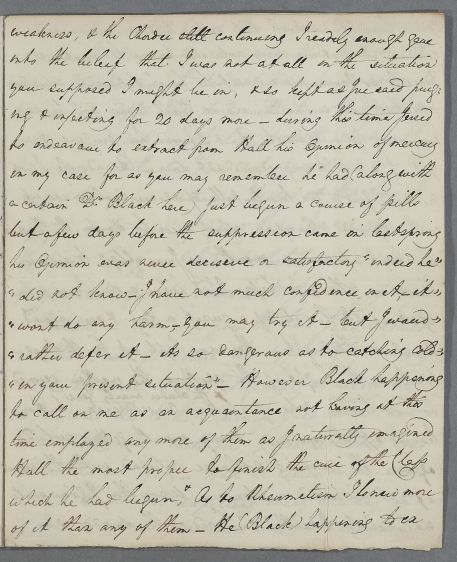 weakness, & the Chordee still continuing I readily enough gave
into the belief that I was not at all in the situation
you supposed I might be in, & so kept as I've said purg-
ing & injecting for 20 days more – during this time I used
to endeavour to extract from Hall his Opinion of mercury
in my case for as you may remember he had (along with
a certain Dr Black here) just begun a course of pills
but a few days before the suppression came in last spring
his Opinion was never decisive or satisfactory "indeed he"
"did not know – I have not much confidence in it – it"
"wont do any harm – you may try it – but I woud"
"rather defer it – its so dangerous as to catching cold"
"in your present situation" – However Black happening
to call on me as an acquaintance not having at this
time employed any more of them as I naturally imagined
Hall the most proper to finish the cure of the Clap
which he had begun, As to Rheumatism I knew more
of it than any of them – He (Black) happening to